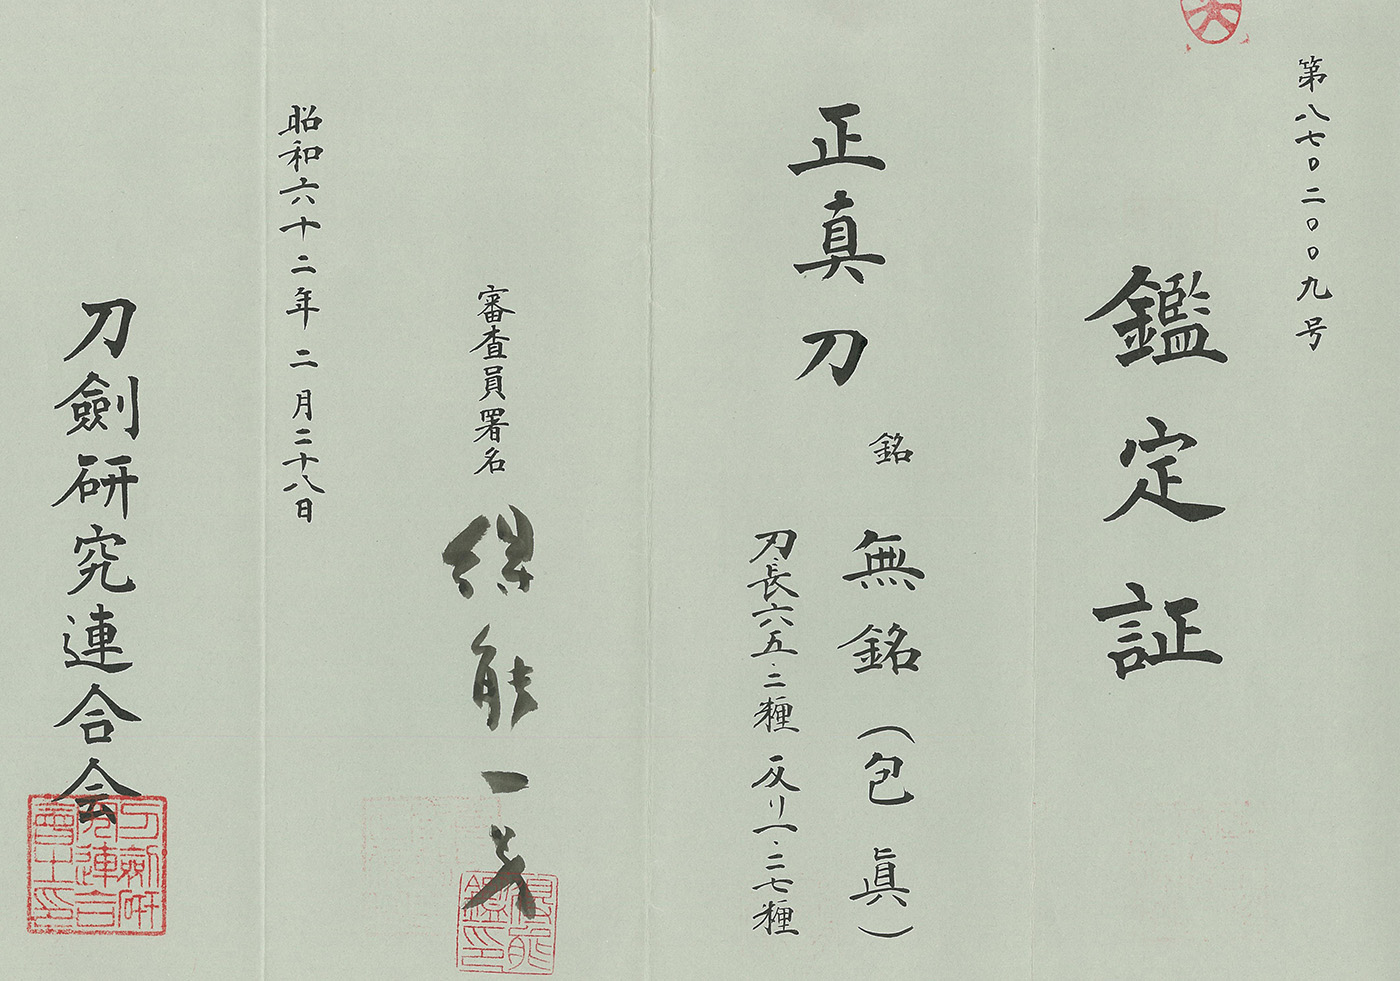 第八七〇二〇〇九号
鑑定証
正真刀
銘 無銘（包眞）
刃長六五・二糎 反リ一・二七糎
審査員署名 得能一男
得能鑑印
昭和六十二年二月二十八日
刀劍研究連合会
刀劍研究連合會之印